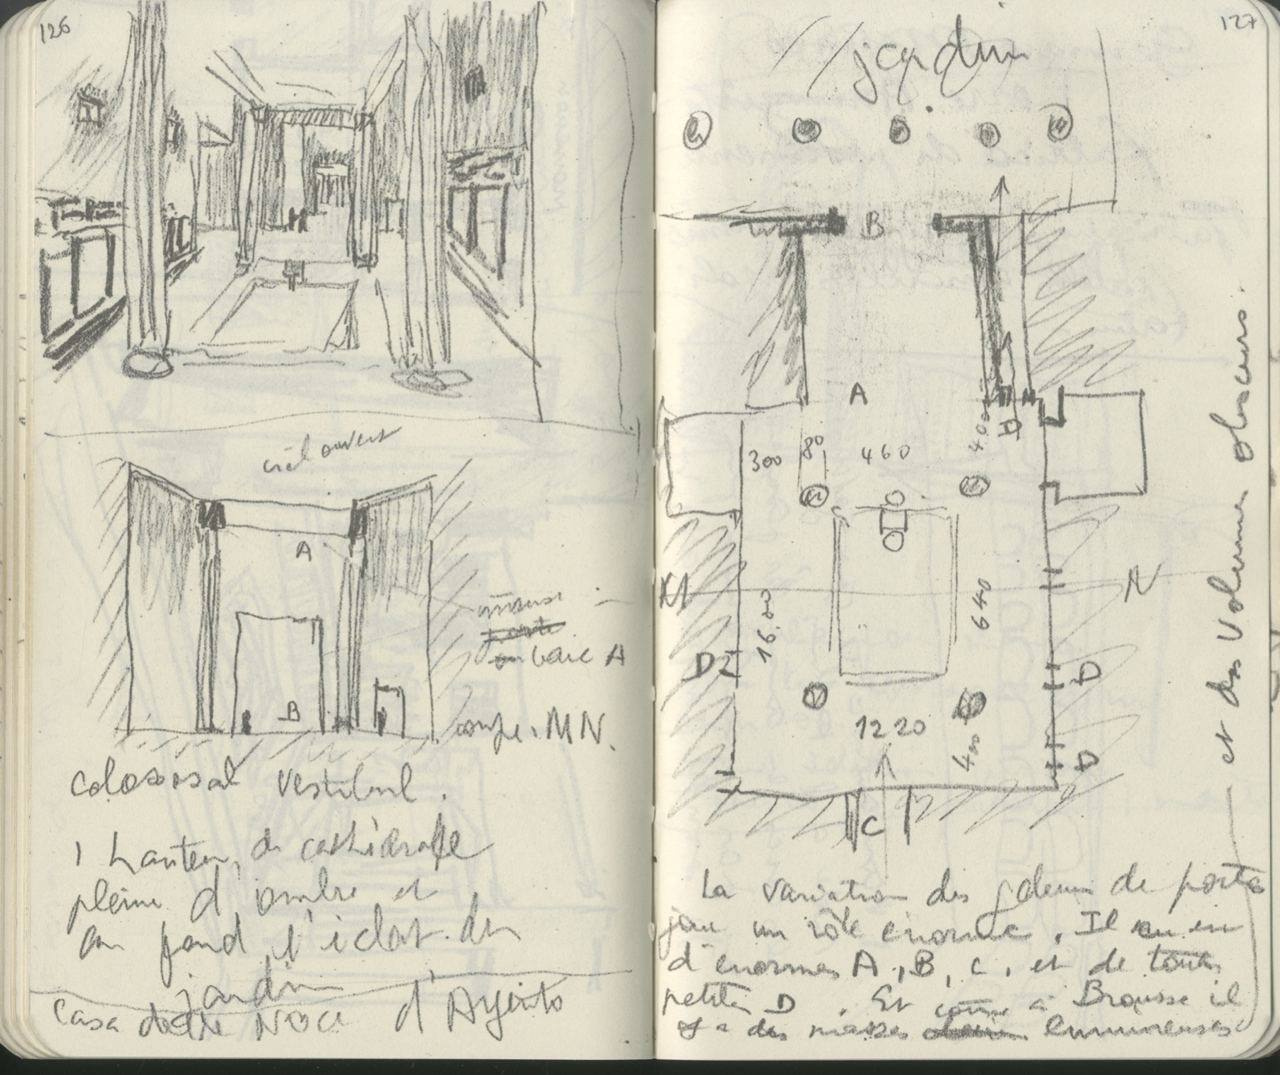 126
ciel ouvert
A
B
immense
porte
ou baie A
coupe. MN.
colossal vestibul.
1 hauteur, de cathédrale
pleine d'ombre et
au fond l'éclat du
jardin
Casa delle Noce d'Argento
127
jardin
B
A
H
300 80 460 400
M
N
16.00
640
D
D
D
1220
400
C
La variation des grdeurs de portes
joue un rôle énorme. Il en
d'énormes A, B, C, et de toutes
petites D. Et comme à Brousse il
y a des masses lumineuses
et des volumes obscurs.